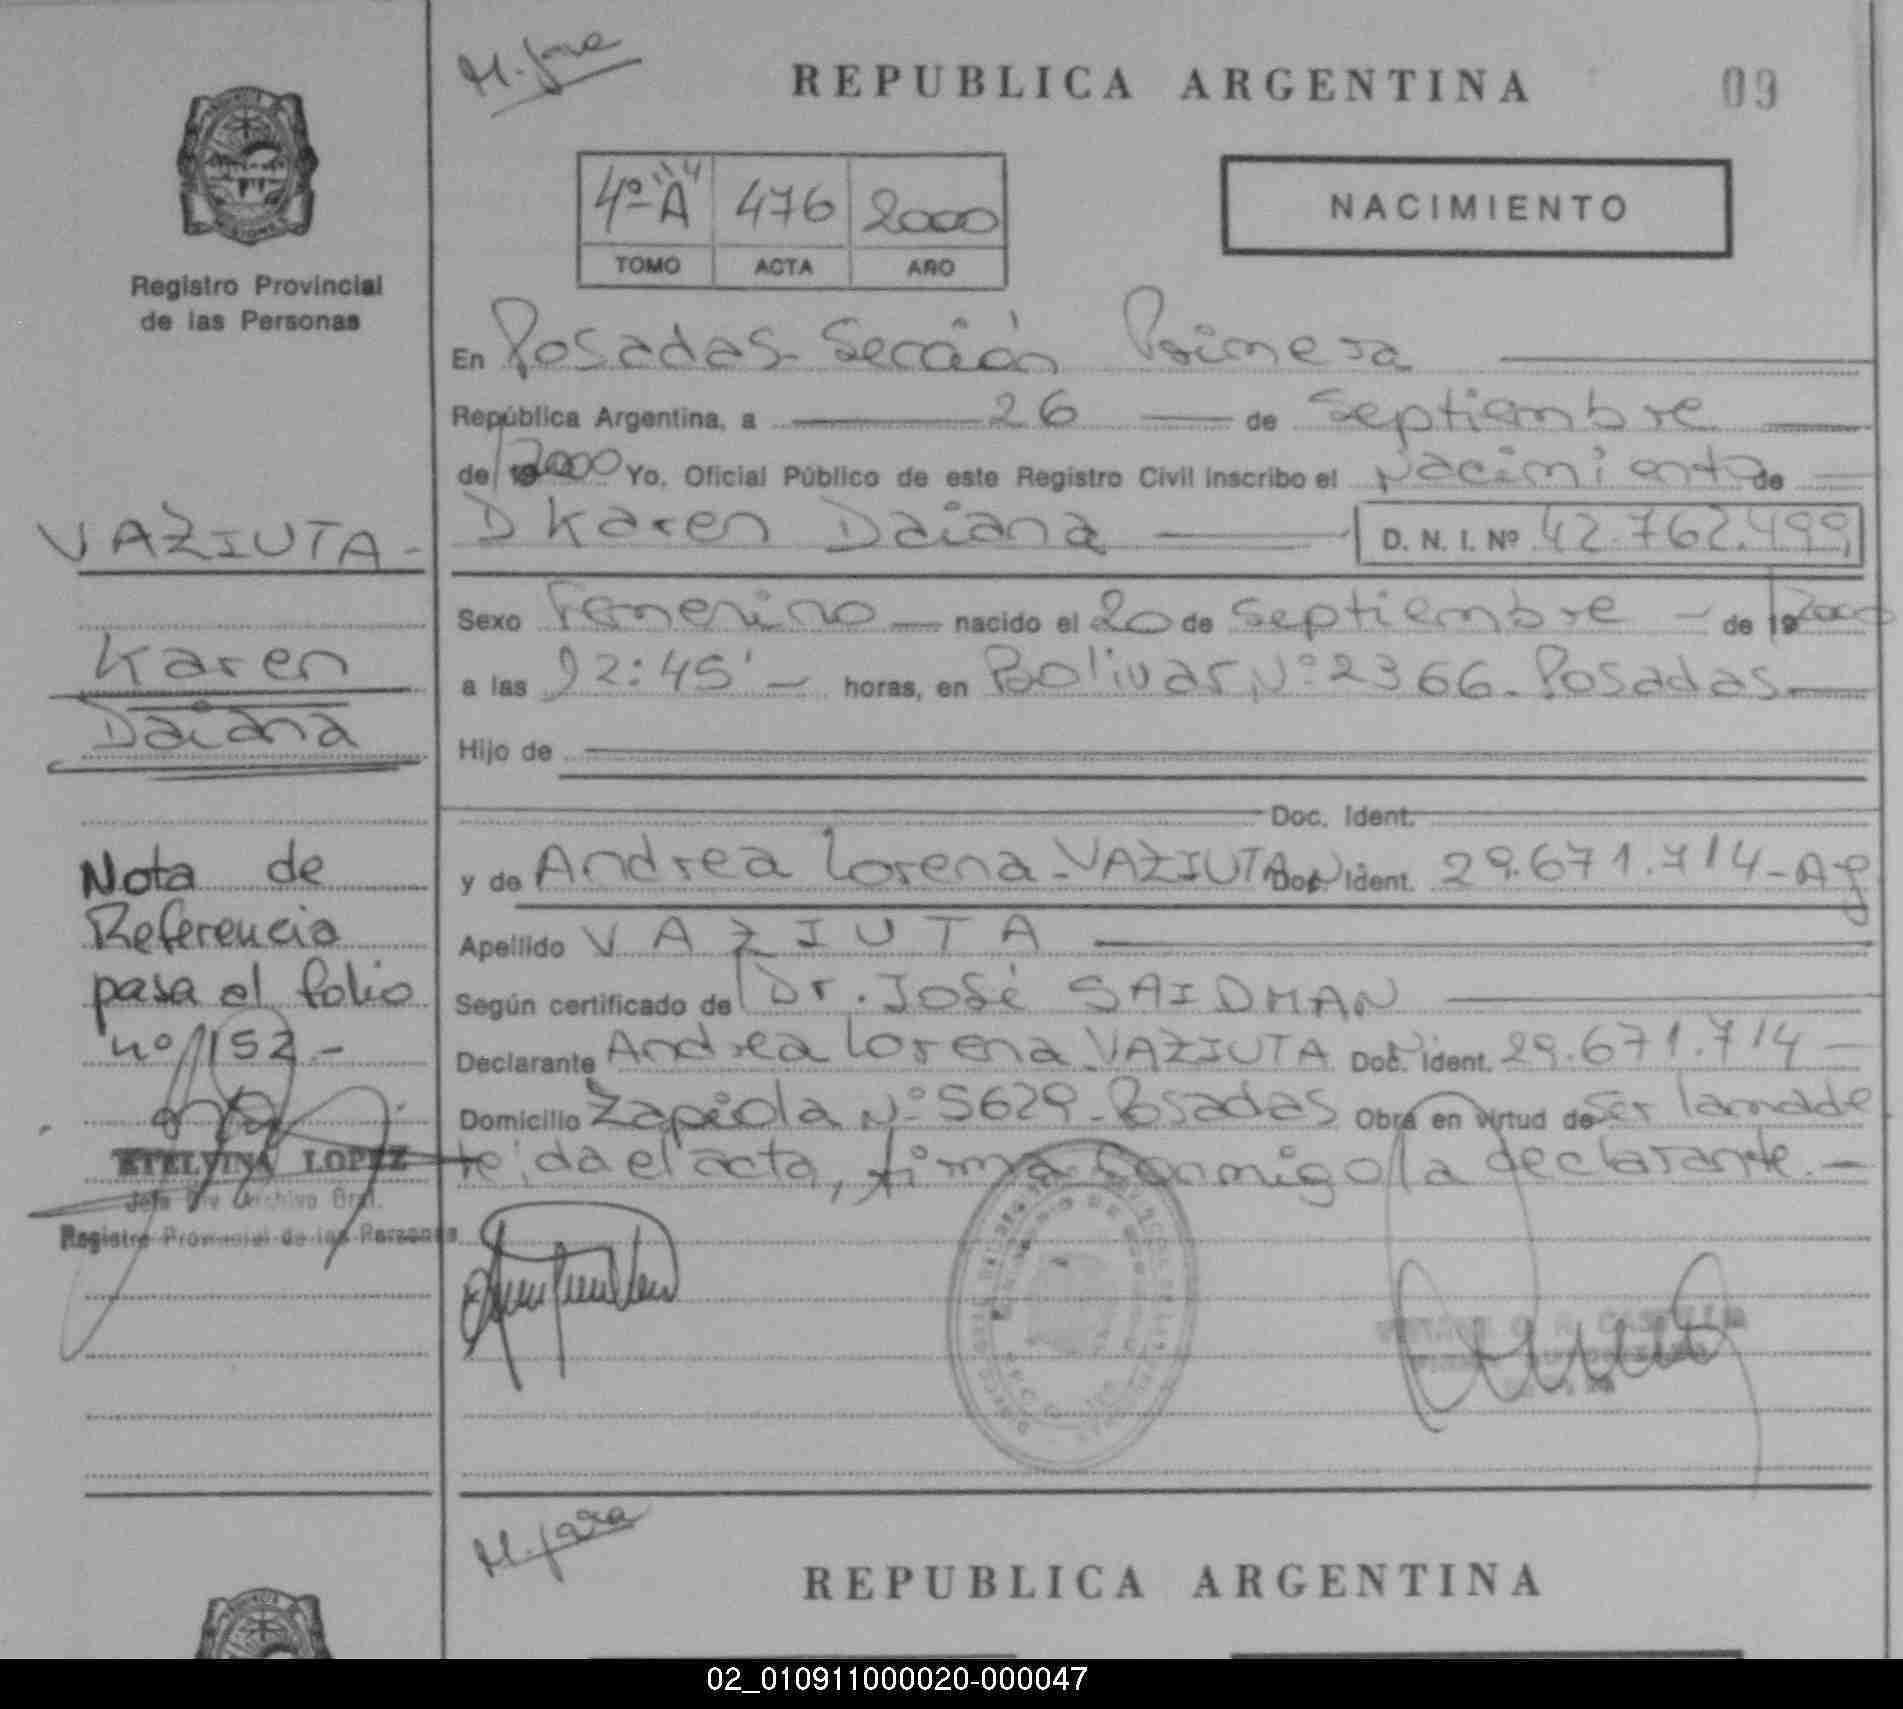 M. Jara
REPUBLICA ARGENTINA
09
4º "A" 476 2000
TOMO ACTA AÑO
NACIMIENTO
Registro Provincial
de las Personas
En Posadas - Sección Primera
República Argentina, a 26 de Septiembre
de 19 2000 Yo, Oficial Público de este Registro Civil inscribo el Nacimiento de
D Karen Daiana D. N. I. Nº 42.762.499
Sexo Femenino nacido el 20 de Septiembre - de 19 2000
a las 12:45' - horas, en Bolivar Nº 2366 - Posadas
Hijo de
Doc. Ident.
y de Andrea Lorena - VAZIUTA Doc. Ident. 29.671.714 - Arg
Apellido VAZIUTA
Según certificado de Dr. José SAIDMAN
Declarante Andrea Lorena VAZIUTA Doc. Ident. 29.671.714 -
Domicilio Zapiola Nº 5629 - Posadas Obra en virtud de Ser la madre
leida el acta, firma conmigo la declarante. -
VAZIUTA -
Karen
Daiana
Nota de
Referencia
pasa al folio
nº 152 -
ETELVINA LOPEZ
Jefe Div Archivo Gral.
Registro Provincial de las Personas
M. Jara
REPUBLICA ARGENTINA
02_010911000020-000047